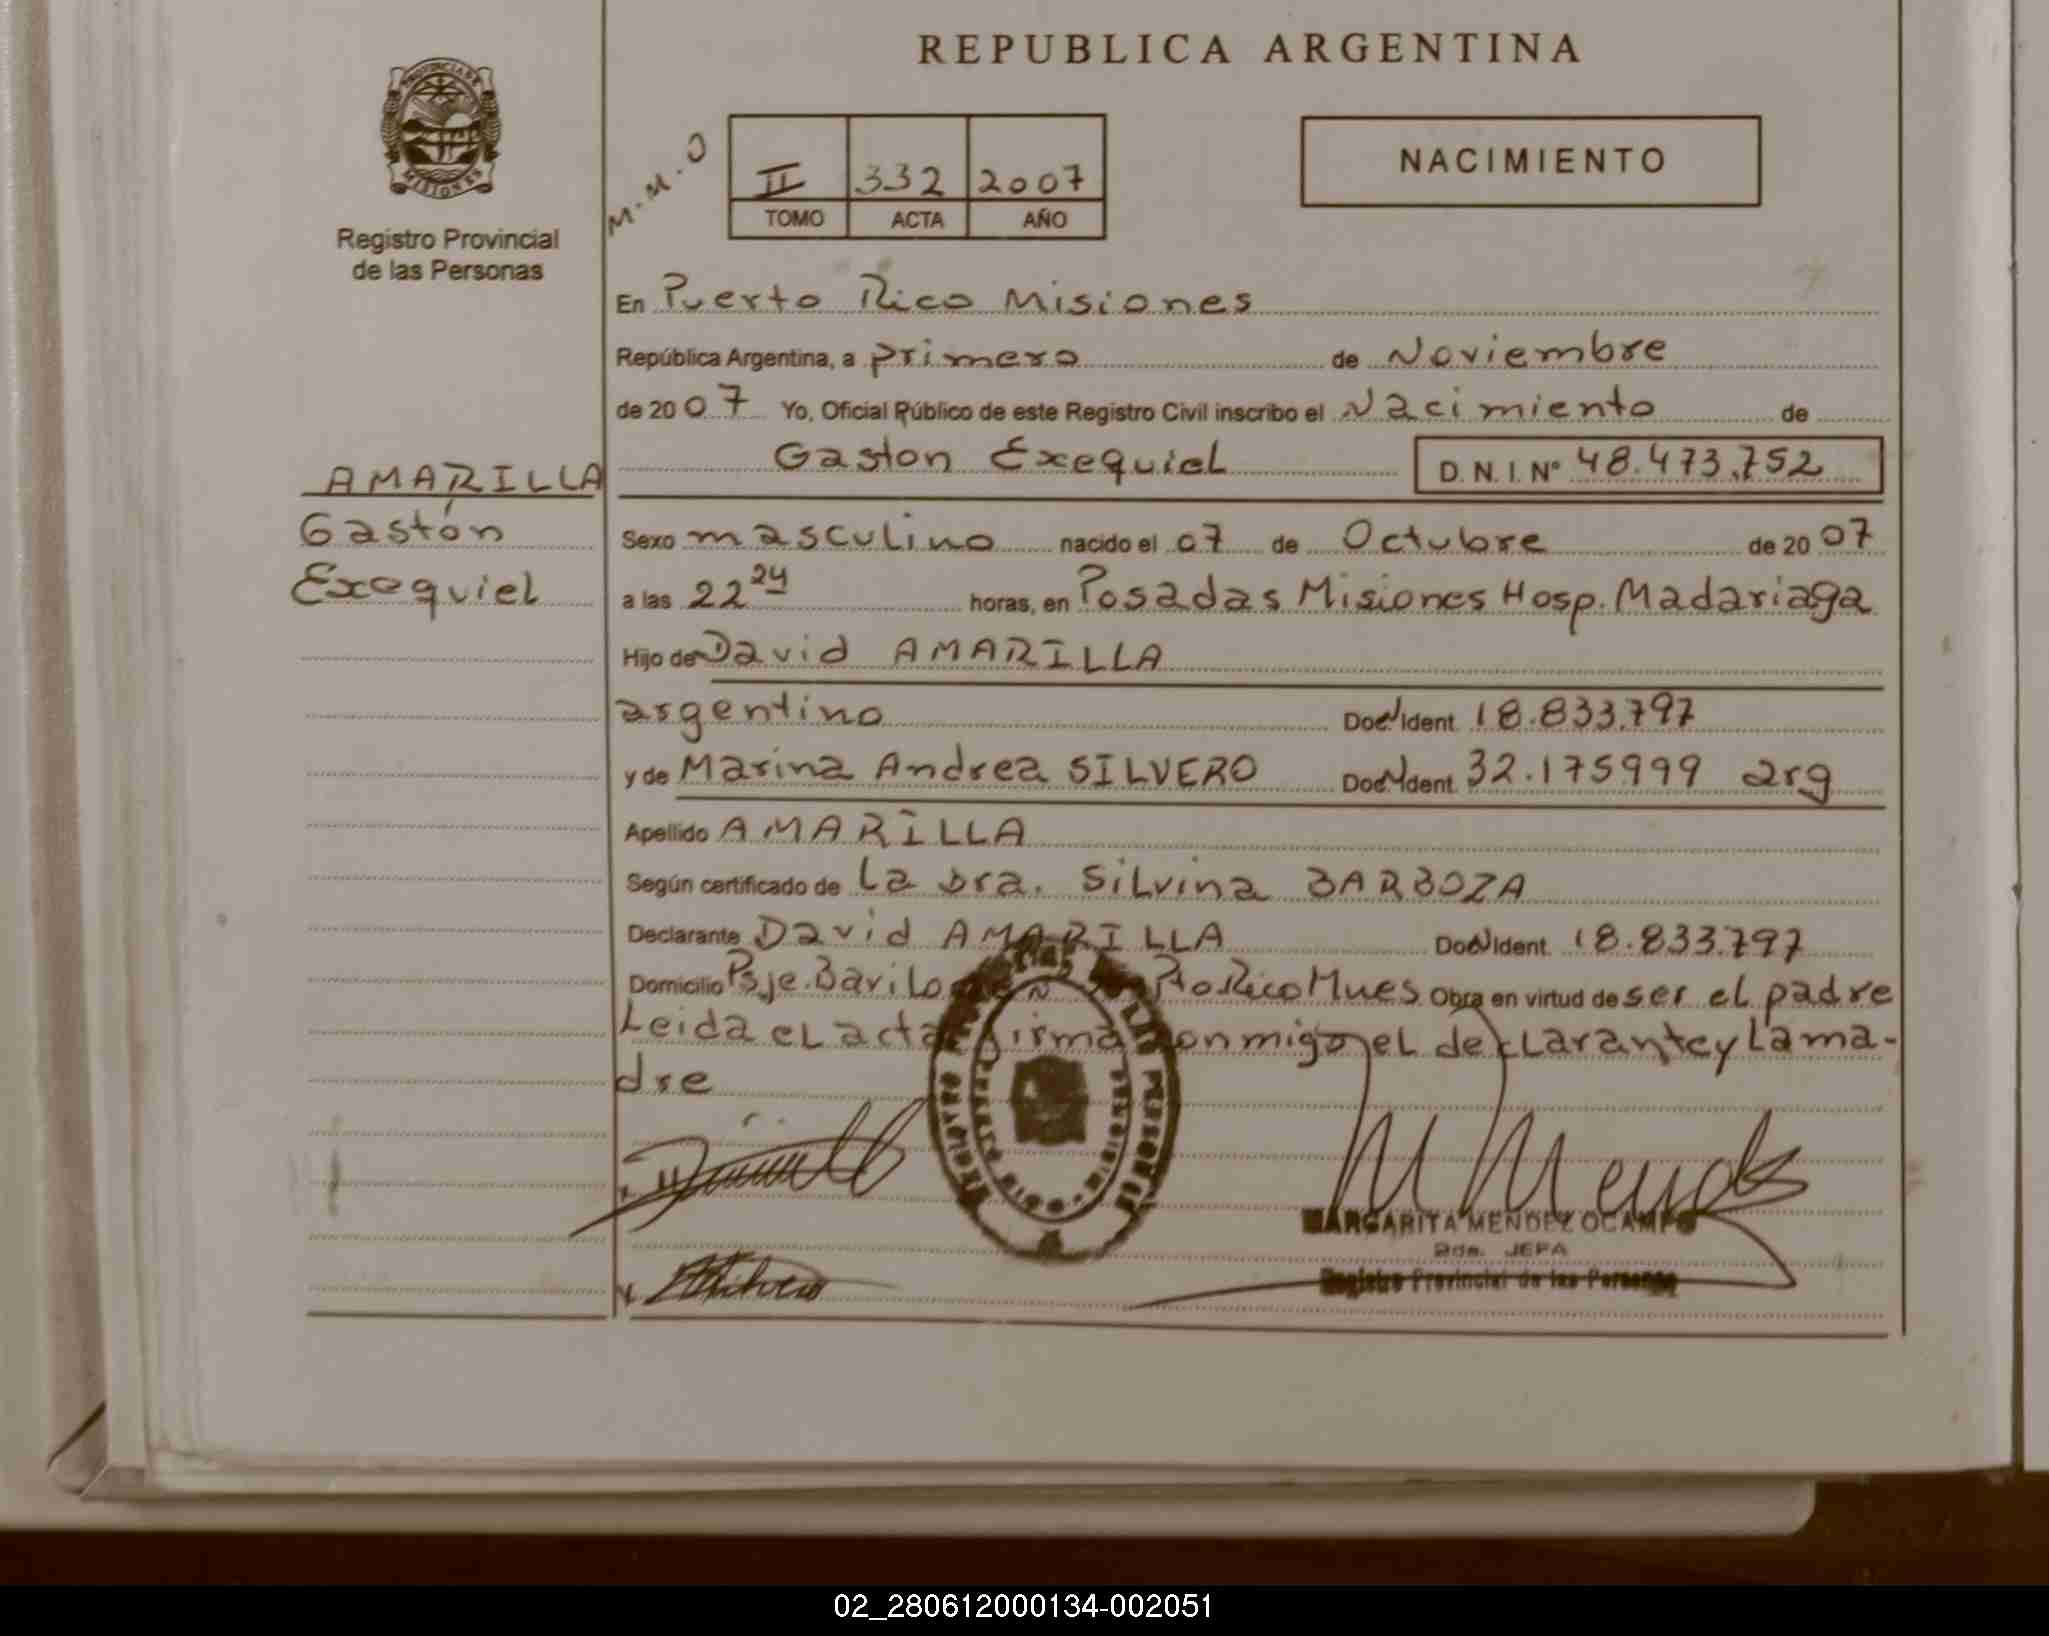 REPUBLICA ARGENTINA
PROVINCIA DE
MISIONES
Registro Provincial
de las Personas
M.M.O
II 332 2007
TOMO ACTA AÑO
NACIMIENTO
En Puerto Rico Misiones
República Argentina, a primero de Noviembre
de 2007 Yo, Oficial Público de este Registro Civil inscribo el Nacimiento de
Gaston Exequiel D.N.I.Nº 48.473.752
AMARILLA
Gastón
Exequiel
Sexo masculino nacido el 07 de Octubre de 2007
a las 22 24 horas, en Posadas Misiones Hosp. Madariaga
Hijo de David AMARILLA
argentino Doc. Ident. 18.833.797
y de Marina Andrea SILVERO Doc. Ident. 32.175999 arg
Apellido AMARILLA
Según certificado de La Dra. Silvina BARBOZA
Declarante David AMARILLA Doc. Ident. 18.833.797
Domicilio Psje. Barilo Pto Rico Mnes Obra en virtud de ser el padre
Leida el acta firma conmigo el declarante y La ma-
dre
MARGARITA MENDEZ OCAMPO
2da. JEFA
Registro Provincial de las Personas
02_280612000134-002051